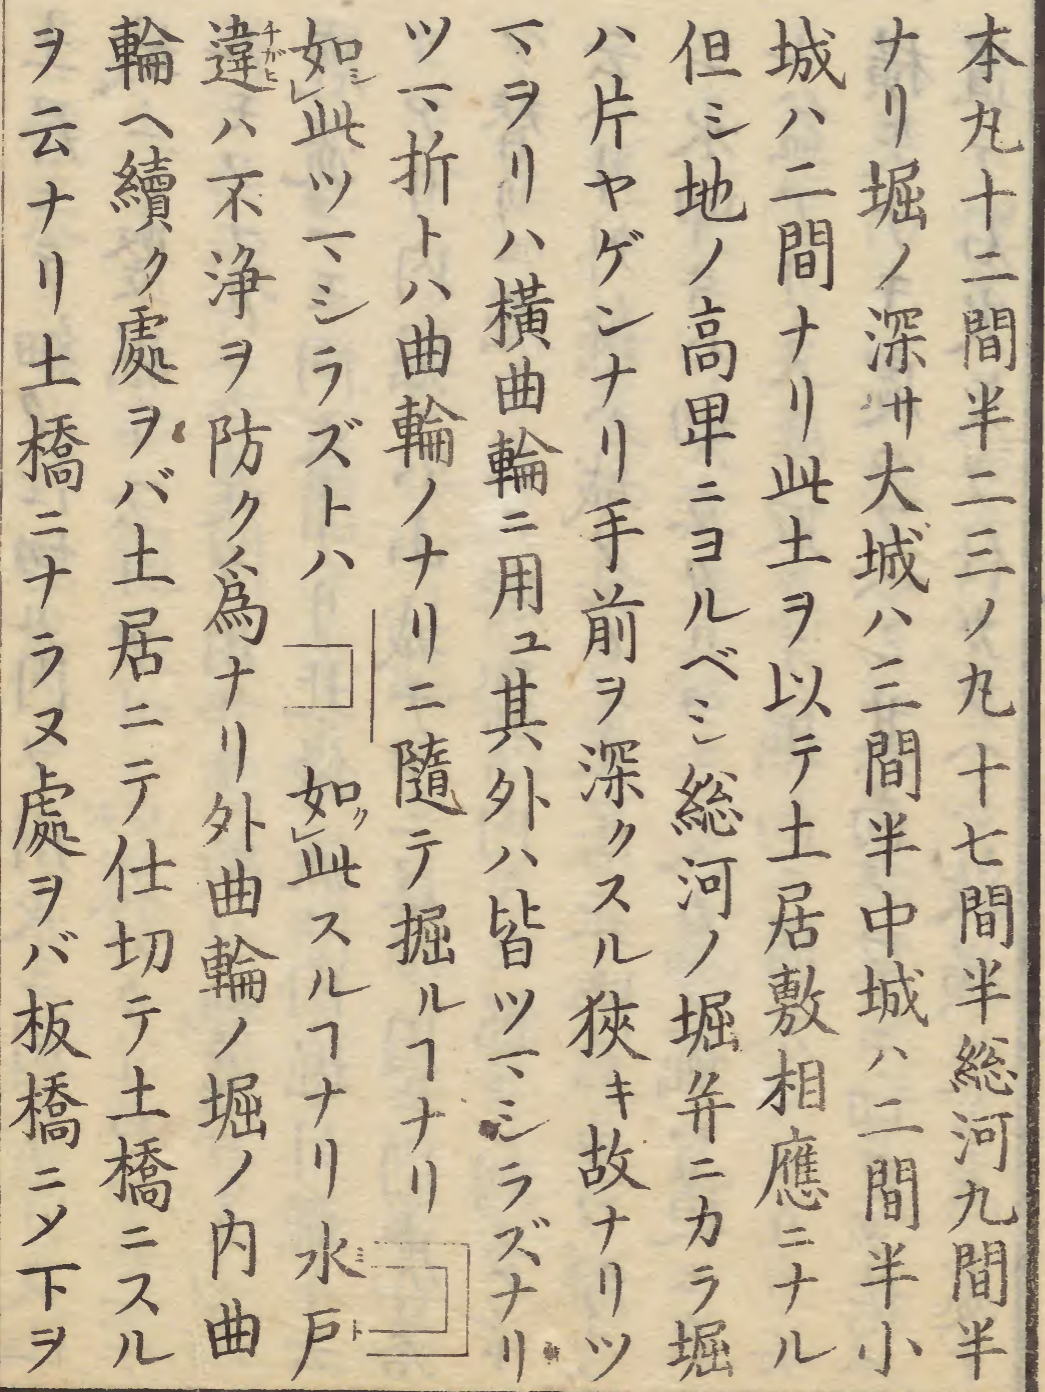 本丸十二間半二三ノ丸十七間半総河九間半
ナリ堀ノ深サ大城ハ三間半中城ハ二間半小
城ハ二間ナリ此土ヲ以テ土居敷相應ニナル
但シ地ノ高卑ニヨルベシ総河ノ堀并ニカラ堀
ハ片ヤゲンナリ手前ヲ深クスル狹キ故ナリツ
マヲリハ横曲輪ニ用ユ其外ハ皆ツマシラズナリ
ツマ折トハ曲輪ノナリニ隨テ掘ルヿナリ
如シ㆑此ツマシラズトハ 如ク㆑此スルヿナリ水戸ミト
違チガヒハ不浄ヲ防ク爲ナリ外曲輪ノ堀ノ内曲
輪ヘ續ク處ヲバ土居ニテ仕切テ土橋ニスル
ヲ云ナリ土橋ニナラヌ處ヲバ板橋ニソ下ヲ